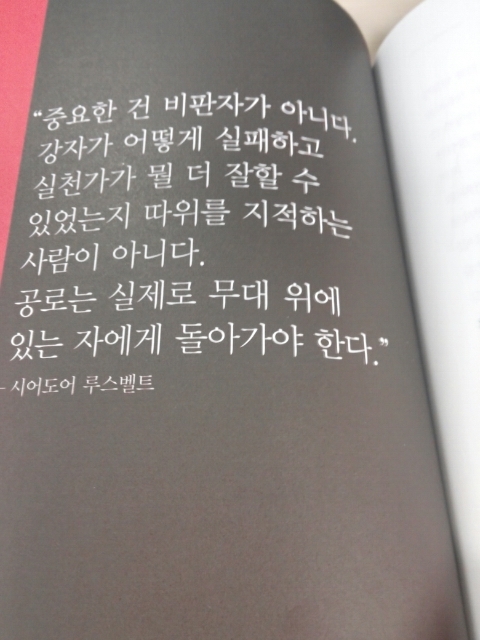 “중요한 건 비판자가 아니다.
강자가 어떻게 실패하고
실천가가 뭘 더 잘할 수
있었는지 따위를 지적하는
사람이 아니다.
공로는 실제로 무대 위에
있는 자에게 돌아가야 한다.”
- 시어도어 루스벨트